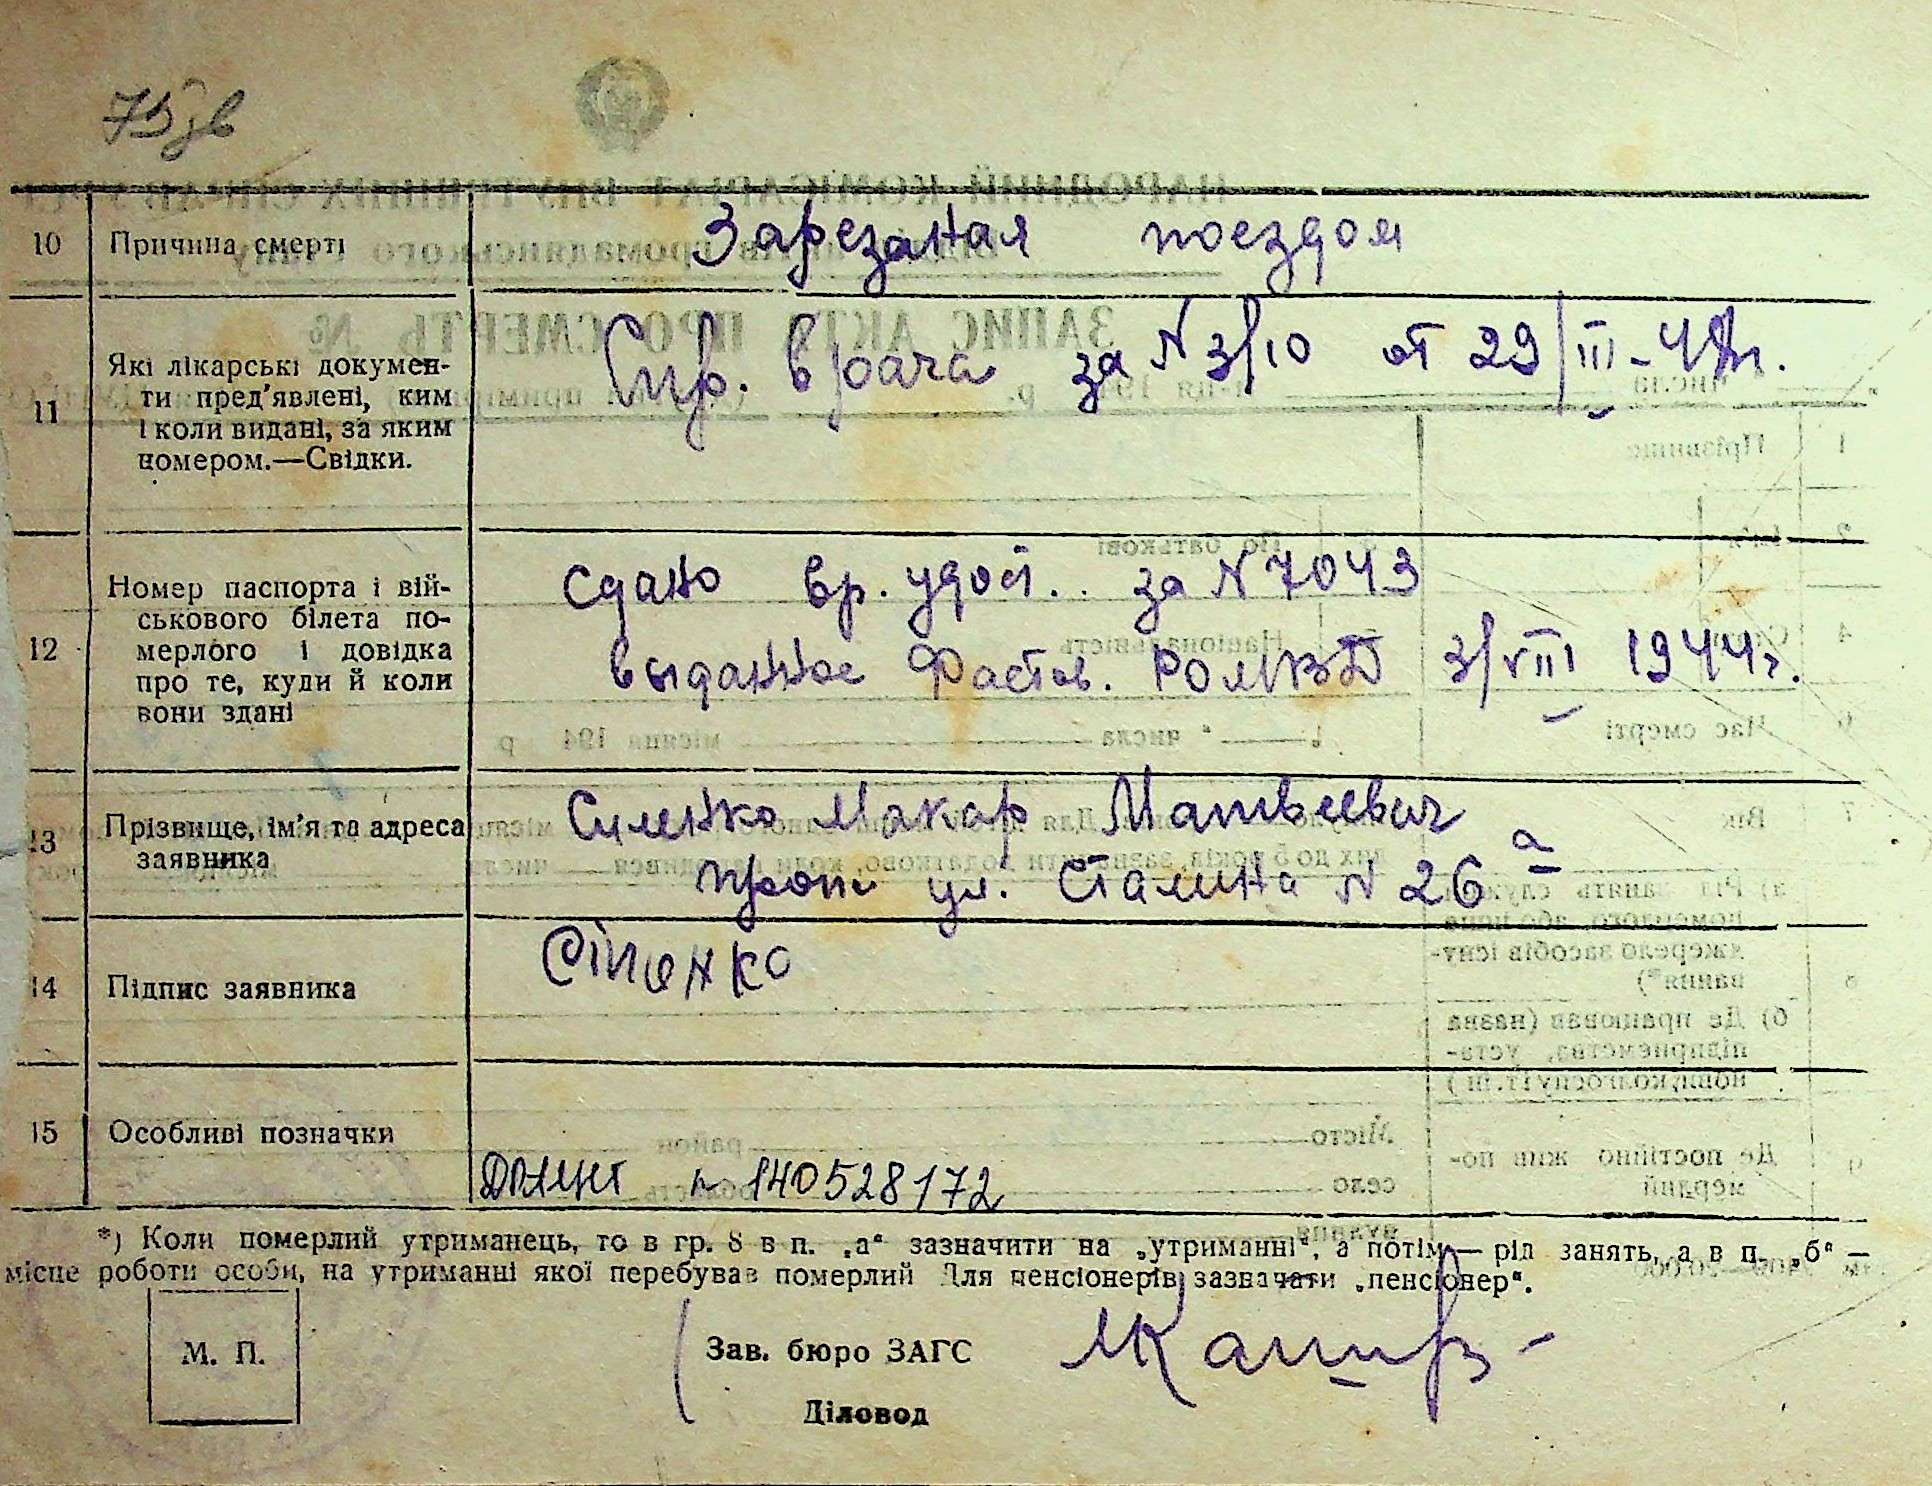 75зв
10 Причина смерті Зарезаная поездом
11 Які лікарські докумен-
ти пред'явлені, ким
і коли видані, за яким
номером.—Свідки.
Спр. врача за N 3/10 от 29/III-47г.
12 Номер паспорта і вій-
ськового білета по-
мерлого і довідка
про те, куди й коли
вони здані
сдано вр. удост. за N 7043
выданное Фастов. РОМВД 3/VIII 1944г.
13 Прізвище, ім'я та адреса
заявника
Макар Матвеевич
ул. Сталина N 26 а
14 Підпис заявника
15 Особливі позначки
N 140528172
*) Коли померлий утриманець, то в гр. 8 в п. „а“ зазначити на „утриманні“, а потім — рід занять, а в п. „б“ —
місце роботи особи, на утриманні якої перебував померлий Для пенсіонерів зазначати „пенсіонер“.
М. П.
Зав. бюро ЗАГС
Діловод